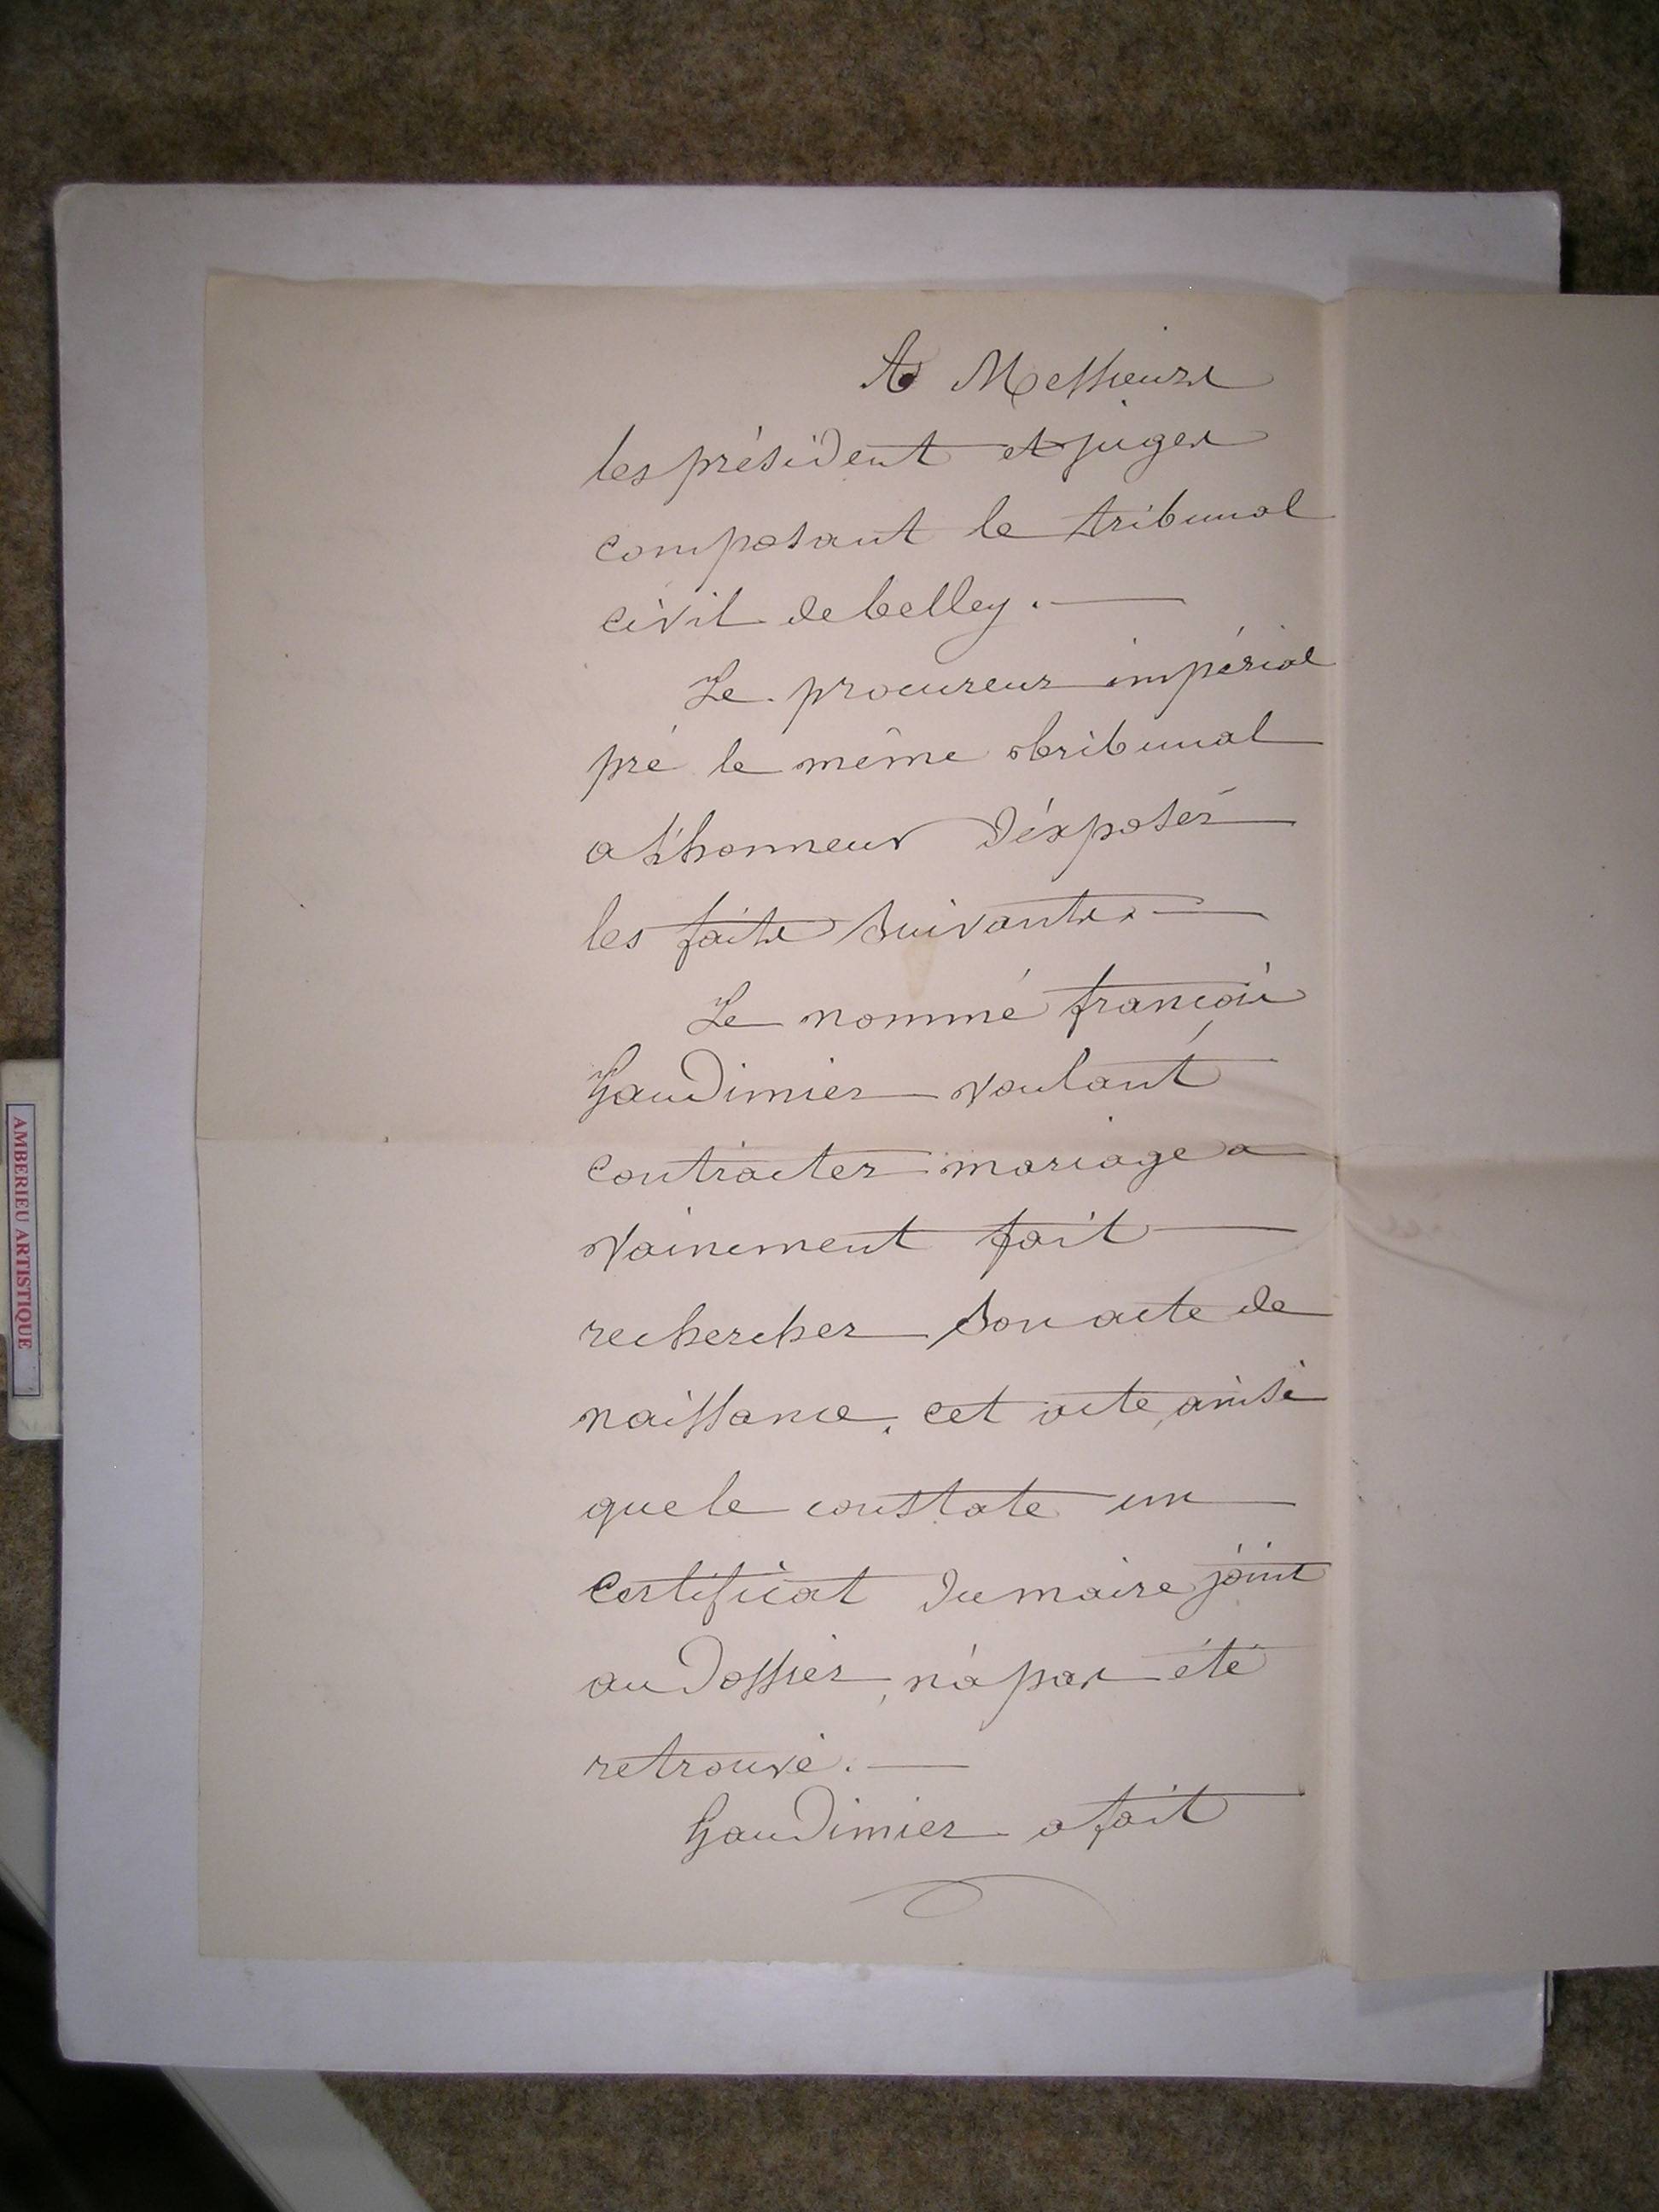 A Messieurs
les président et juges
composant le tribunal
civil de belley. —
Le procureur impérial
pré le même tribunal
a l'honneur d'éxposer
les faits suivants. —
Le nommé françois
Gaudimier voulant
contracter mariage a
vainement fait —
rechercher son acte de
naissance, cet acte, ainsi
que le constate un
certificat du maire joint
au dossier, n'a pas été
retrouvé. —
Gaudimier a fait
AMBERIEU ARTISTIQUE